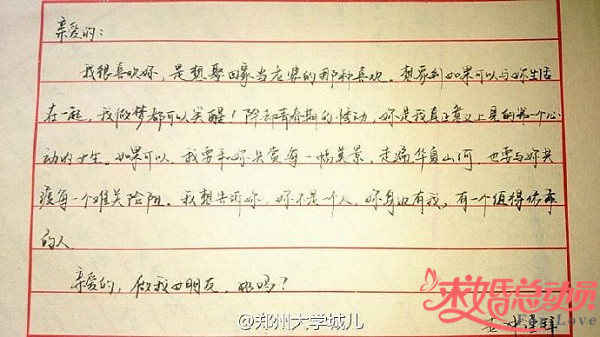 亲爱的:
我很喜欢妳,是想娶回家当老婆的那种喜欢。想象到如果可以与妳生活
在一起,我做梦都可以笑醒!除却青春期的悸动,妳是我真正意义上见的第一个心
动的女生。如果可以,我要和妳共赏每一幅美景,走遍华夏山河,也要与妳共
渡每一个难关险阻。我想告诉妳,妳不是一个人,妳身边有我,有一个值得依靠
的人。
亲爱的,做我女朋友,好吗?
@郑州大学城儿
求婚总动员
Love